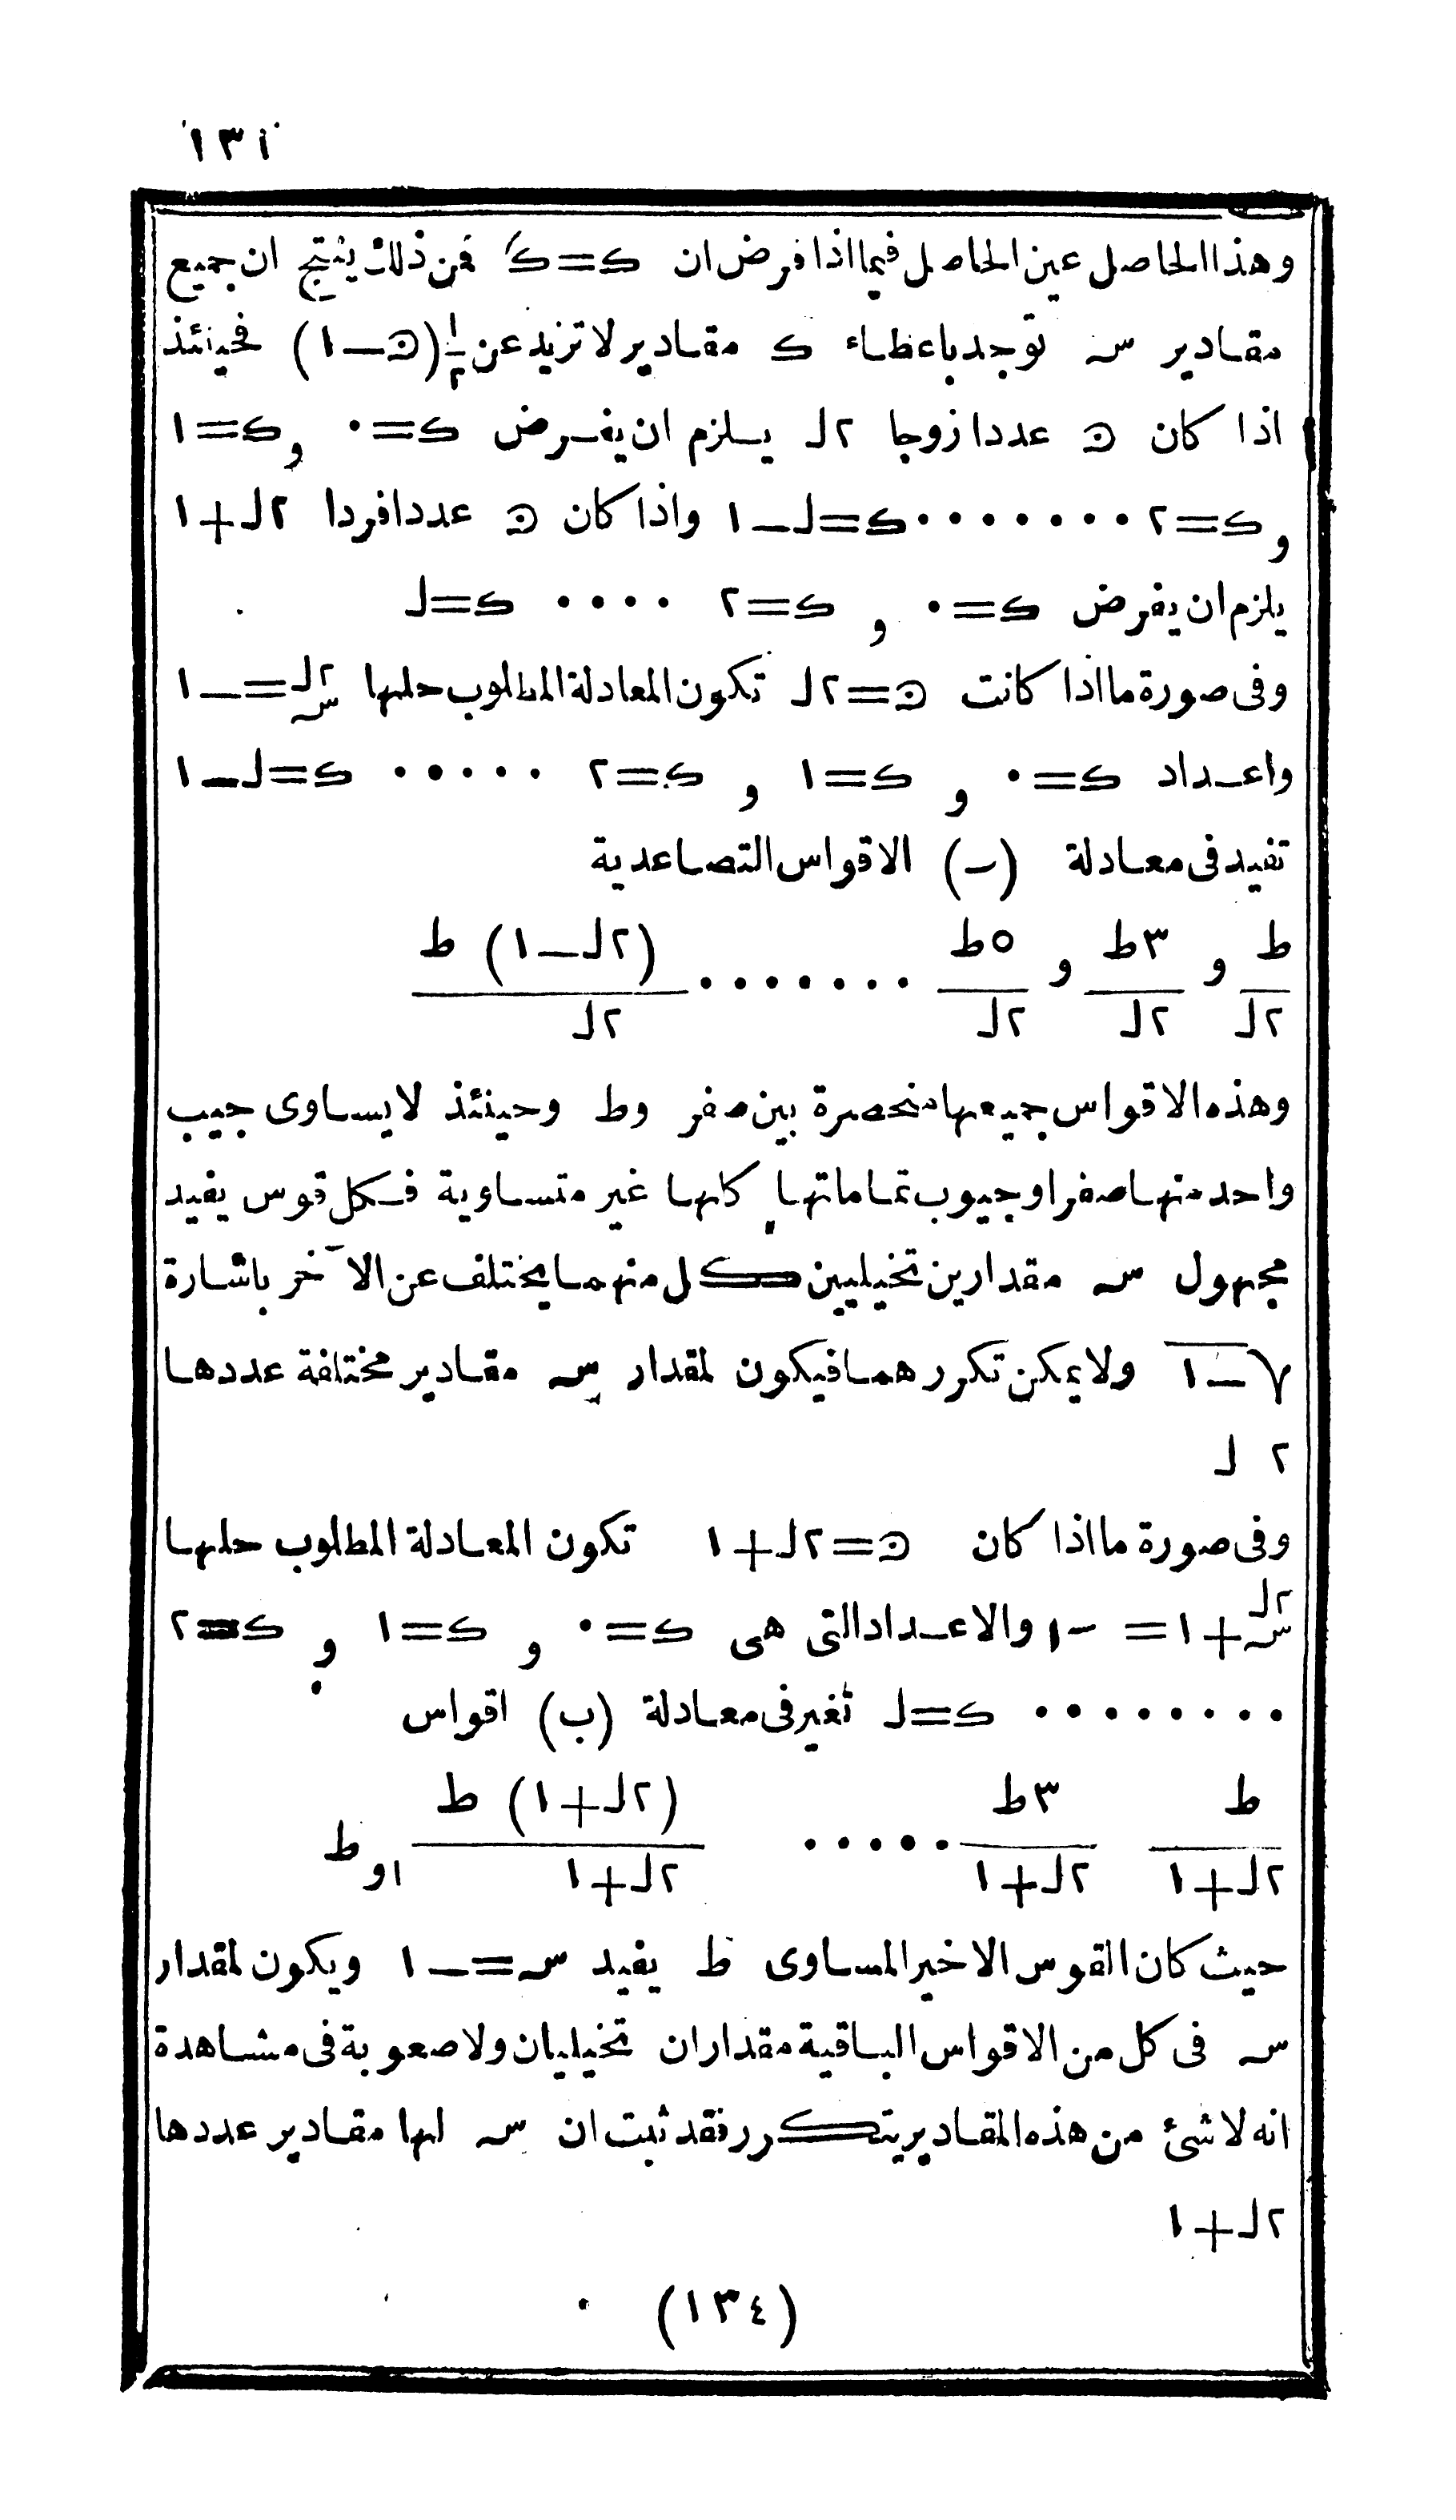 ١٣١
وهذا الحاصل عين الحاصل فيما اذا فرض ان ک=ک َ فمن ذلك ينتج ان جميع
مقادير سہ توجد باعطاء ک مقادير لا تزيد عن ١/٢(ں-١) فحينئذ
اذا كان ں عددا زوجا ٢ل يلزم ان يفرض ک=٠ و ک=١
و ک=٢ ........ ک=ل-١ واذا كان ں عددا فردا ٢ل+١
يلزم ان يفرض ک=٠ و ک=٢ .... ک=ل
وفى صورة ما اذا كانت ں=٢ل تكون المعادلة المطلوب حلها سہ^٢ل=-١
واعداد ک=٠ و ک=١ و ک=٢ ..... ک=ل-١
تفيد فى معادلة (ب) الاقواس التصاعدية
ط/٢ل و ٣ط/٢ل و ٥ط/٢ل ....... (٢ل-١) ط/٢ل
وهذه الاقواس جميعها منحصرة بين صفر وط وحينئذ لا يساوى جيب
واحد منها صفرا وجيوب تماماتها كلها غير متساوية فكل قوس يفيد
مجهول سہ مقدارين تخيليين كل منهما يختلف عن الآخر باشارة
√-١ ولا يمكن تكررهما فيكون لمقدار سہ مقادير مختلفة عددها
٢ ل
وفى صورة ما اذا كان ں=٢ل+١ تكون المعادلة المطلوب حلها
سہ^٢ل+١=-١ والاعداد التى هى ک=٠ و ک=١ و ک=٢
........ ک=ل تغير فى معادلة (ب) اقواس
ط/٢ل+١ ٣ط/٢ل+١ ..... (٢ل+١) ط/٢ل+١ او ط
حيث كان القوس الاخير المساوى ط يفيد سہ=-١ ويكون لمقدار
سہ فى كل من الاقواس الباقية مقداران تخيليان ولا صعوبة فى مشاهدة
انه لا شئ من هذه المقادير يتكرر فقد ثبت ان سہ لها مقادير عددها
٢ل+١
(١٣٤)